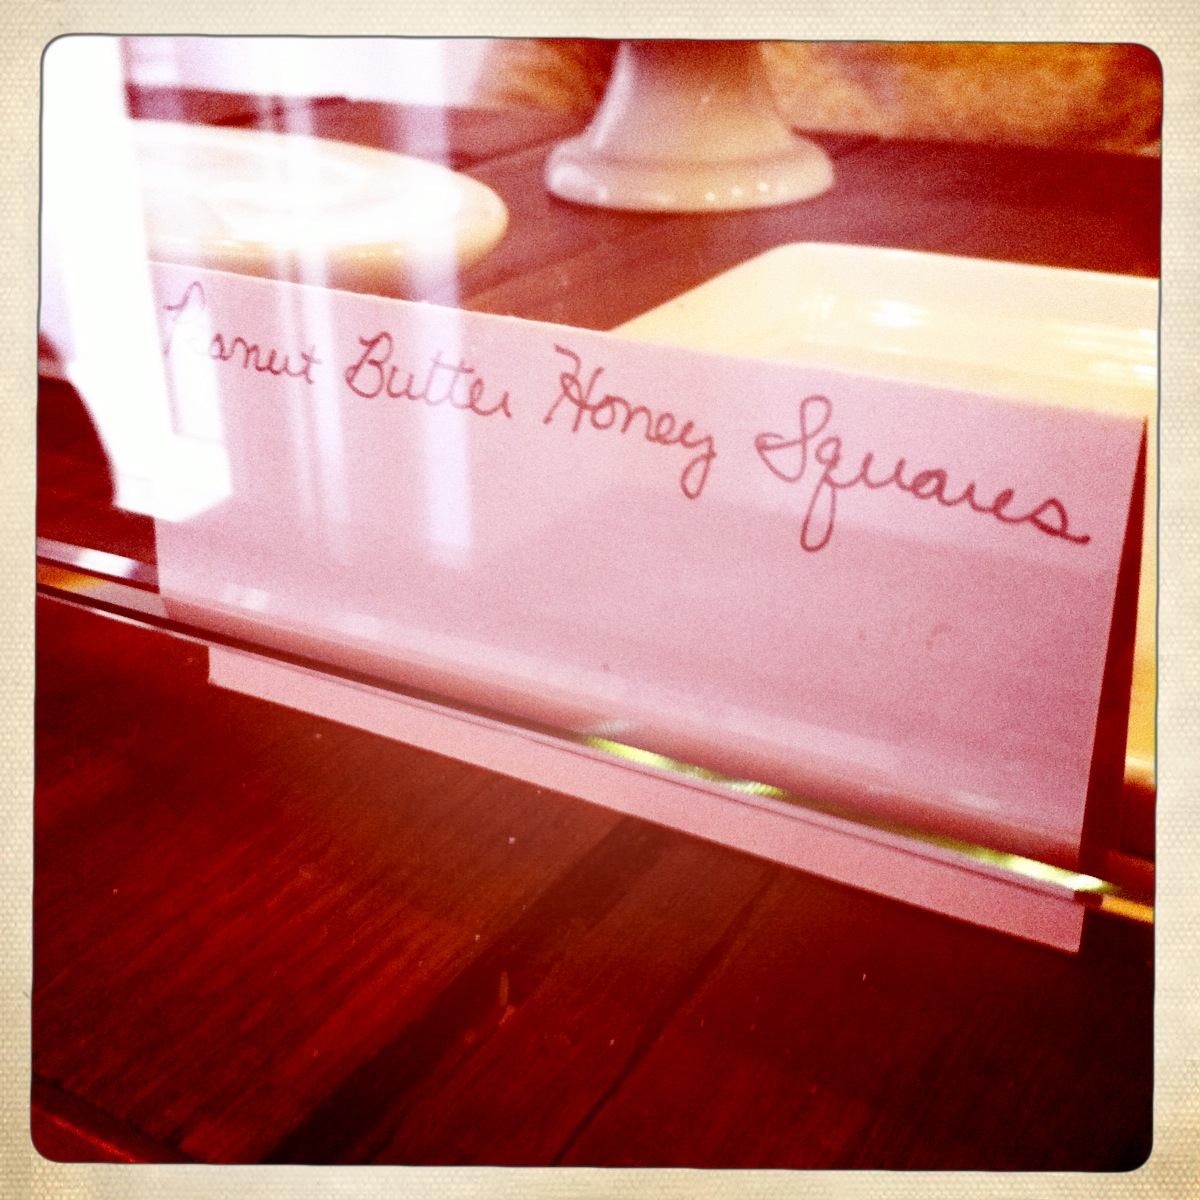 Peanut Butter Honey Squares